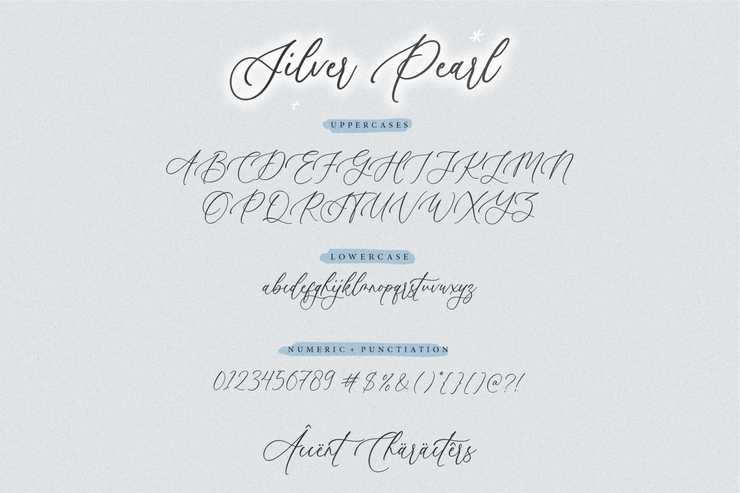 Silver Pearl
UPPERCASES
ABCDEFGHIJKLMN
OPQRSTUVWXYZ
LOWERCASE
abcdefghijklmnopqrstuvwxyz
NUMERIC + PUNCTIATION
0123456789 # $ % & ( ) * { } [ ] @ ? !
Âccënt Chäräctêrs